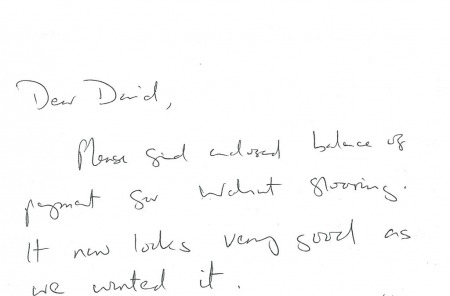 Dear David,
Please find enclosed balance of
payment for Walnut flooring.
It now looks very good as
we wanted it.